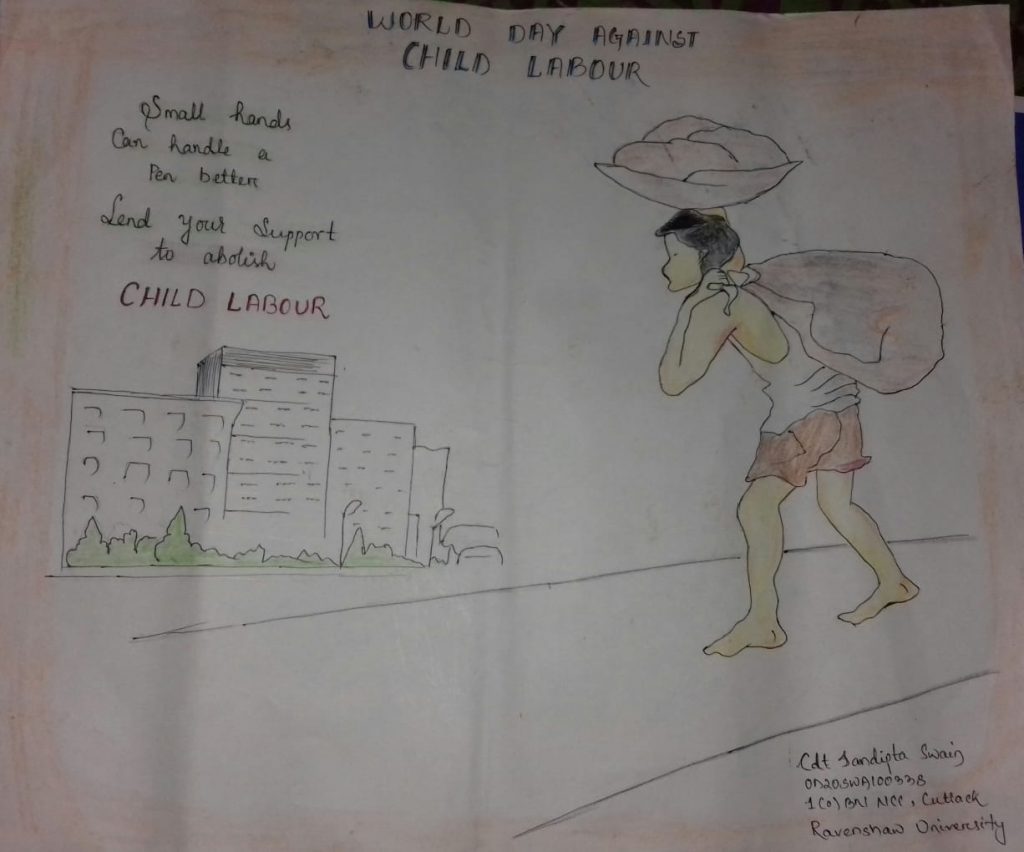 WORLD DAY AGAINST
CHILD LABOUR
Small hands
Can handle a
Pen better
Lend your Support
to abolish
CHILD LABOUR
Cdt Sandipta Swain
OD20SWA100338
1(O) BN NCC, Cuttack
Ravenshaw University